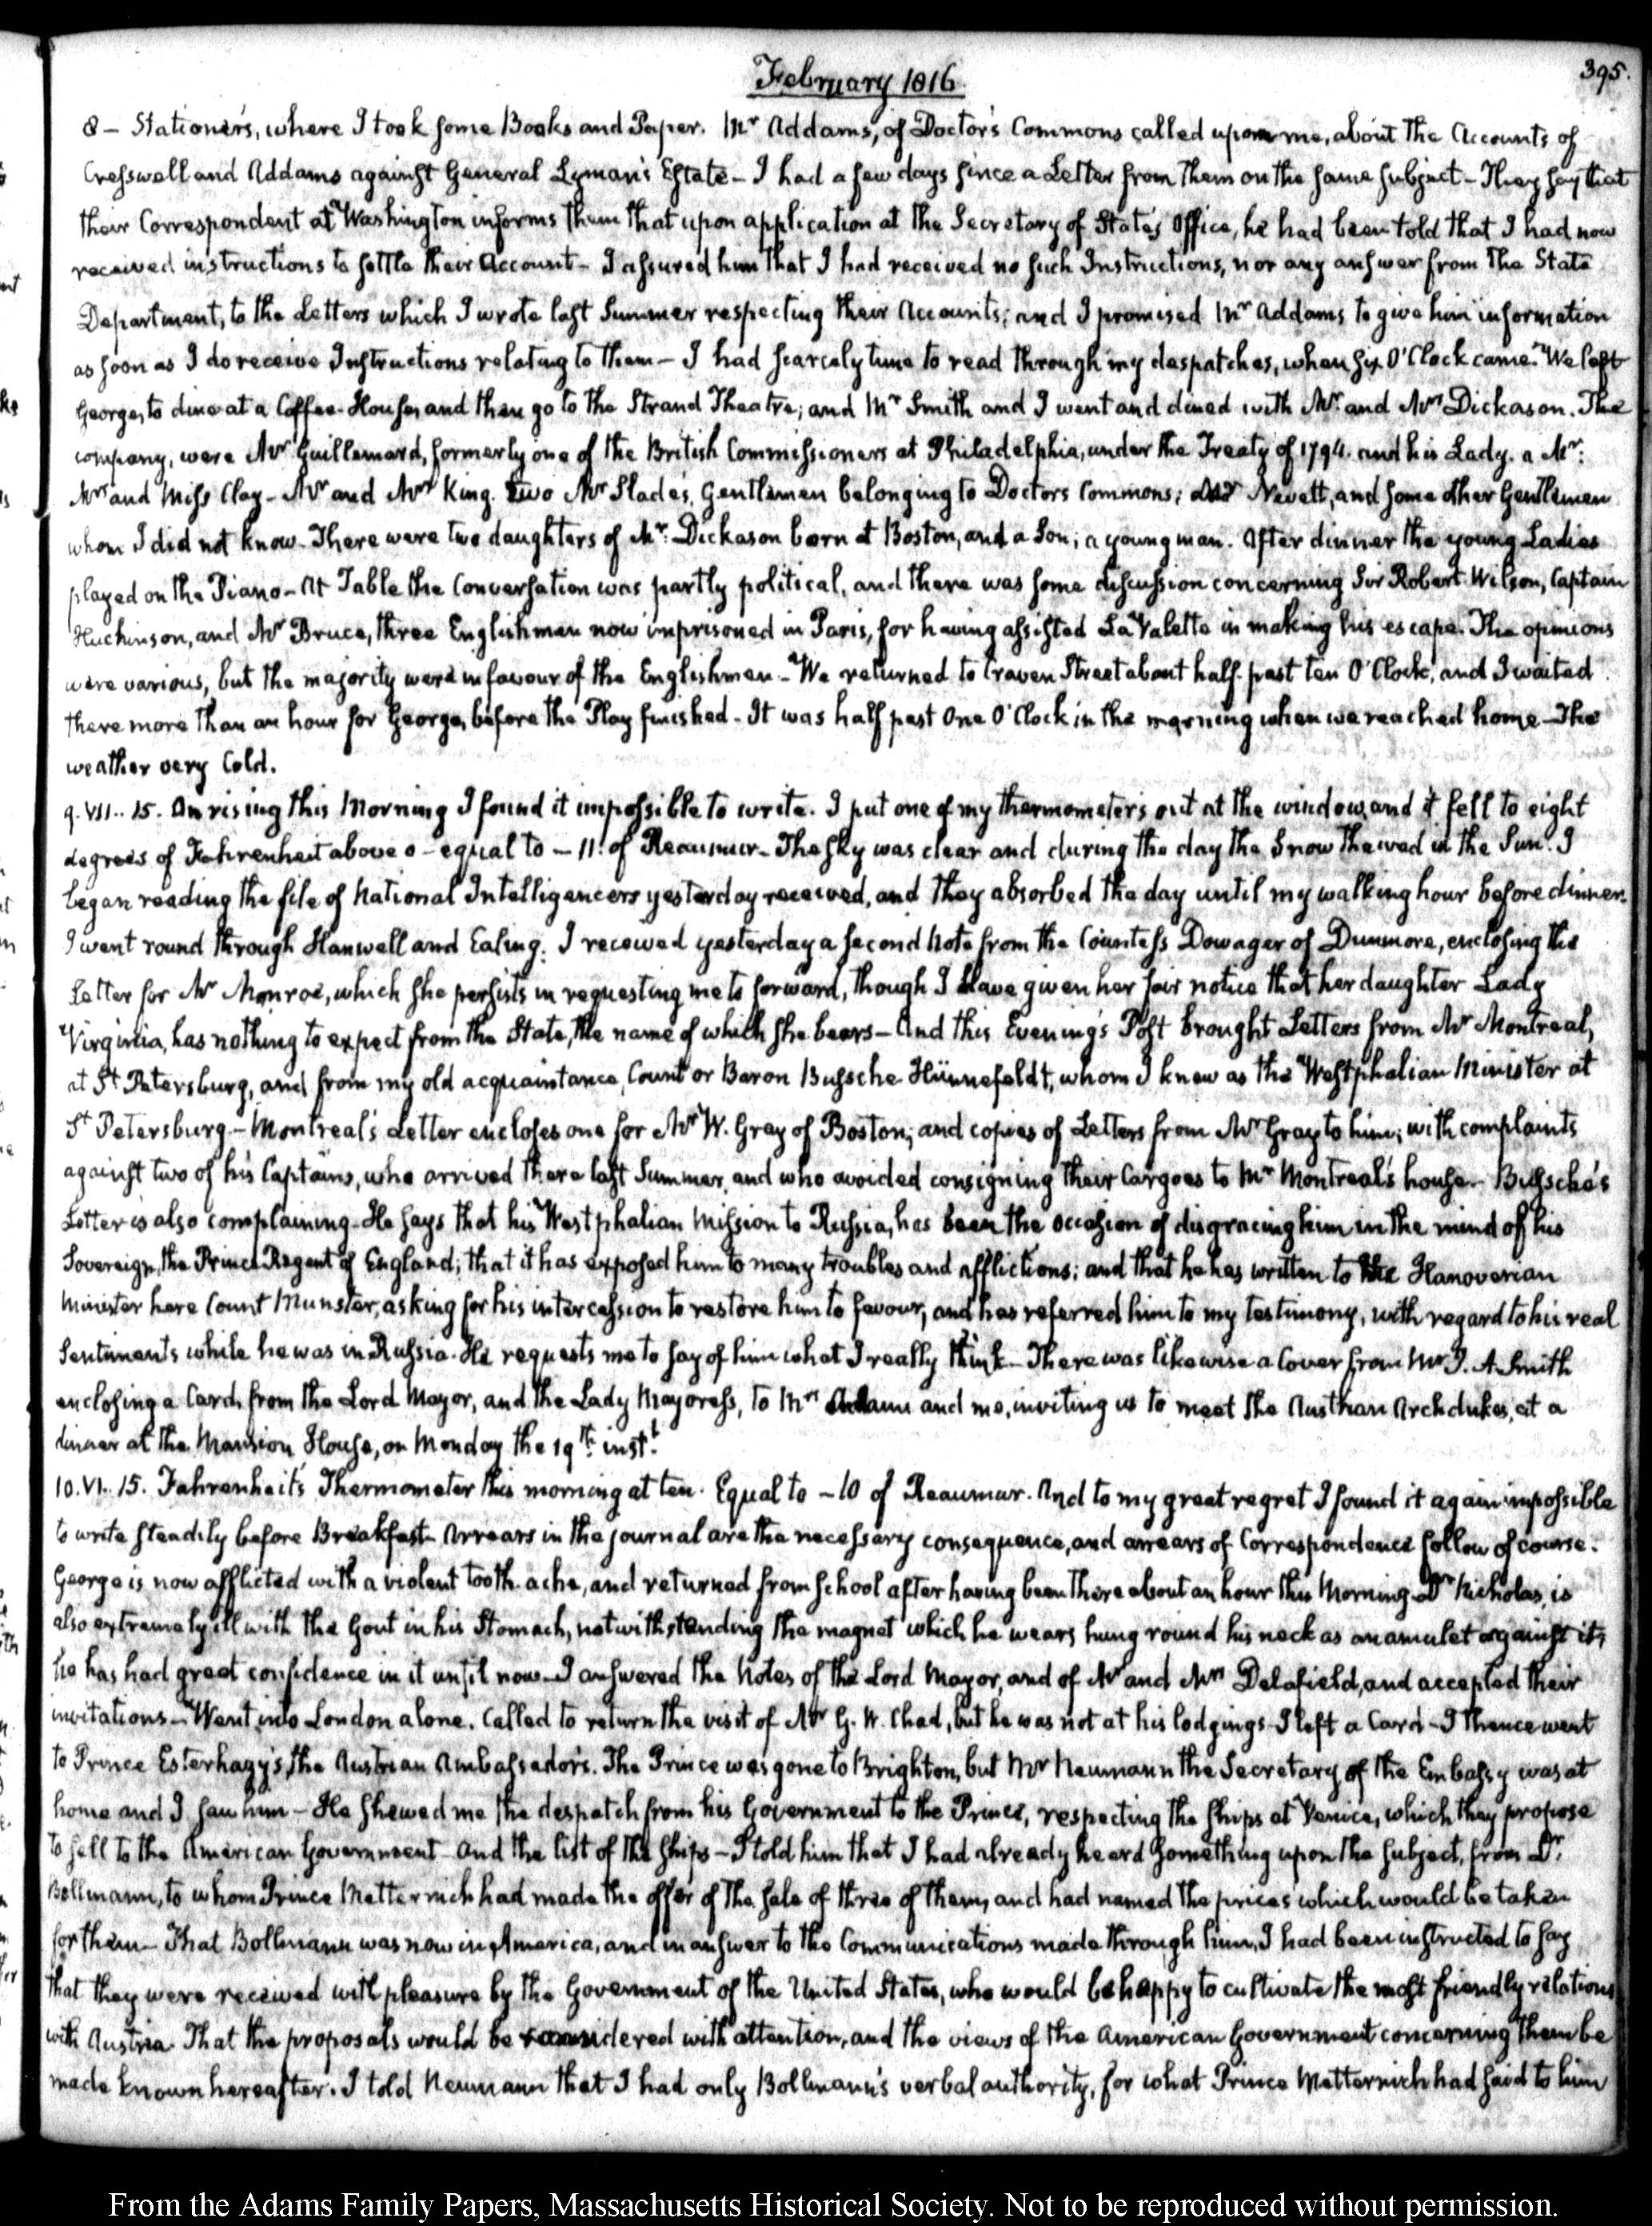 February 1816.
395.
8 – Stationer's, where I took some Books and Paper. Mr. Addams, of Doctor's Commons called upon me, about the Accounts of
Cresswell and Addams against General Lyman's Estate – I had a few days since a Letter from them on the same subject – They say that
their Correspondent at Washington informs them that upon application at the Secretary of State's Office, he had been told that I had now
received instructions to settle their Account – I assured him that I had received no such Instructions, nor any answer from the State
Department, to the Letters which I wrote last Summer respecting their Accounts; and I promised Mr. Addams to give him information
as soon as I do receive Instructions relating to them – I had scarcely time to read through my despatches, when six O'Clock came. We left
George, to dine at a Coffee-House, and then go to the Strand Theatre; and Mr. Smith and I went and dined with Mr. and Mrs. Dickason. The
company, were Mr. Guillemard, formerly one of the British Commissioners at Philadelphia, under the Treaty of 1794. and his Lady. a Mr.:
Mrs. and Miss Clay – Mr. and Mrs. King. two Mr. Slade's, Gentlemen belonging to Doctors Commons; Nevett, and some other Gentlemen
whom I did not know. There were two daughters of Mr. Dickason born at Boston, and a Son; a young man. After dinner the young Ladies
played on the Piano – At Table the Conversation was partly political, and there was some discussion concerning Sir Robert Wilson, Captain
Huchinson, and Mr. Bruce, three Englishmen now imprisoned in Paris, for having assisted La Valette in making his escape. The opinions
were various, but the majority were in favour of the Englishmen – We returned to Craven Street about half-past ten O'Clock, and I waited
there more than an hour for George, before the Play finished – It was half past One O'Clock in the morning when we reached home – The
weather very Cold.
9. VII.. 15. On rising this Morning I found it impossible to write. I put one of my thermometers out at the window, and it fell to eight
degrees of Fahrenheit above 0 – equal to – 11. of Reaumur – The sky was clear and during the day the Snow thawed in the Sun. I
began reading the file of National Intelligencers yesterday received, and they absorbed the day until my walking hour before dinner.
I went round through Hanwell and Ealing. I received yesterday a second Note from the Countess Dowager of Dunmore, enclosing the
Letter for Mr. Monroe, which she persists in requesting me to forward, though I have given her fair notice that her daughter Lady
Virginia, has nothing to expect from the State, the name of which she bears – And this Evening's Post brought Letters from Mr. Montreal,
at St. Petersburg, and from my old acquaintance, Count or Baron Bussche Hünnefeldt, whom I knew as the Westphalian Minister at
St. Petersburg – Montreal's Letter encloses one for Mr. W. Gray of Boston; and copies of Letters from Mr. Gray to him; with complaints
against two of his Captains, who arrived there last Summer, and who avoided consigning their Cargoes to Mr. Montreal's house – Bussche's
Letter is also complaining – He says that his Westphalian Mission to Russia, has been the occasion of disgracing him in the mind of his
Sovereign, the Prince Regent of England; that it has exposed him to many troubles and afflictions; and that he has written to the Hanoverian
Minister here Count Munster, asking for his intercession to restore him to favour, and has referred him to my testimony, with regard to his real
Sentiments while he was in Russia. He requests me to say of him what I really think – There was likewise a Cover from Mr. J. A. Smith
enclosing a Card from the Lord Mayor, and the Lady Mayoress, to Mrs. Adams and me, inviting us to meet the Austrian Archdukes, at a
dinner at the Mansion House, on Monday the 19th. instt.
10. VI.. 15. Fahrenheit's Thermometer this morning at ten. Equal to – 10 of Reaumur. And to my great regret I found it again impossible
to write steadily before Breakfast – Arrears in the journal are the necessary consequence, and arrears of Correspondence follow of course.
George is now afflicted with a violent tooth-ache, and returned from School after having been there about an hour this Morning – Dr. Nicholas, is
also extremely ill with the Gout in his Stomach, notwithstanding the magnet which he wears hung round his neck as an amulet against it;
he has had great confidence in it until now – I answered the Notes of the Lord Mayor, and of Mr. and Mrs. Delafield, and accepted their
invitations – Went into London alone. Called to return the visit of Mr. G. W. Chad, but he was not at his lodgings – I left a Card – I thence went
to Prince Esterhazy's, the Austrian Ambassador's. The Prince was gone to Brighton, but Mr. Neumann the Secretary of the Embassy was at
home and I saw him – He shewed me the despatch from his Government to the Prince, respecting the ships at Venice, which they propose
to sell to the American Government – and the list of the ships – I told him that I had already heard something upon the subject, from Dr.
Bollmann, to whom Prince Metternich had made the offer of the sale of three of them, and had named the prices which would be taken
for them – That Bollmann was now in America, and in answer to the Communications made through him, I had been instructed to say
that they were received with pleasure by the Government of the United States, who would be happy to cultivate the most friendly relations
with Austria. That the proposals would be considered with attention, and the views of the American Government concerning them be
made known hereafter. I told Neumann that I had only Bollmann's verbal authority, for what Prince Metternich had said to him
From the Adams Family Papers, Massachusetts Historical Society. Not to be reproduced without permission.